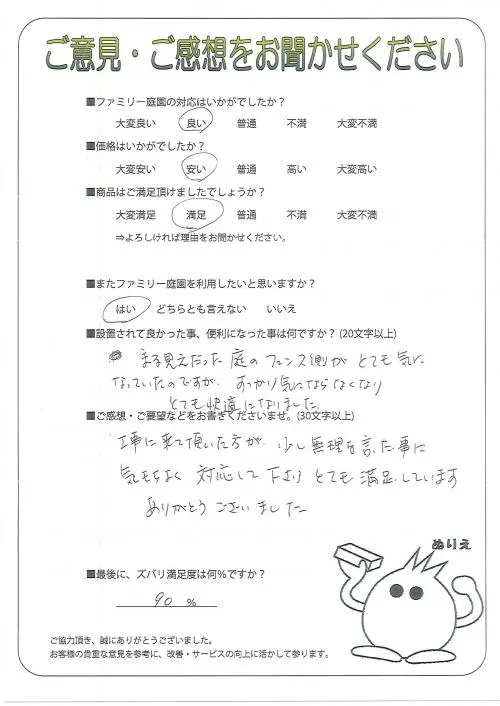 ご意見・ご感想をお聞かせください
■ファミリー庭園の対応はいかがでしたか？
大変良い 良い 普通 不満 大変不満
■価格はいかがでしたか？
大変安い 安い 普通 高い 大変高い
■商品はご満足頂けましたでしょうか？
大変満足 満足 普通 不満 大変不満
⇒よろしければ理由をお聞かせください。
■またファミリー庭園を利用したいと思いますか？
はい どちらとも言えない いいえ
■設置されて良かった事、便利になった事は何ですか？(20文字以上)
まる見えだった庭のフェンス側がとても気に
なっていたのですが、すっかり気にならなくなり
とても快適になりました
■ご感想・ご要望などをお書きくださいませ。(30文字以上)
工事に来て頂いた方が、少し無理を言った事に
気もちよく 対応して下さり とても満足しています
ありがとうございました
ぬりえ
■最後に、ズバリ満足度は何%ですか？
90 %
ご協力頂き、誠にありがとうございました。
お客様の貴重な意見を参考に、改善・サービスの向上に活かして参ります。